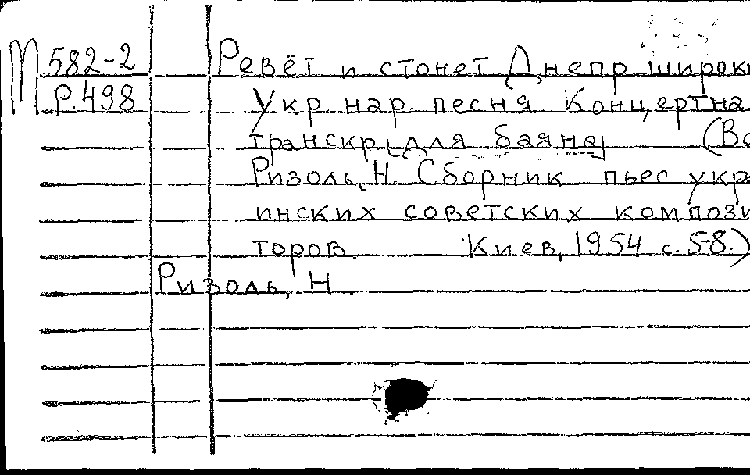 М 582-2 Ревёт и стонет Днепр широк
Р.498 Укр нар песня Концертна
транскр. [для баяна] (Во
Ризоль, Н. Сборник пьес укра
инских советских компози
торов. Киев, 1954 с. 5-8.)
Ризоль, Н.